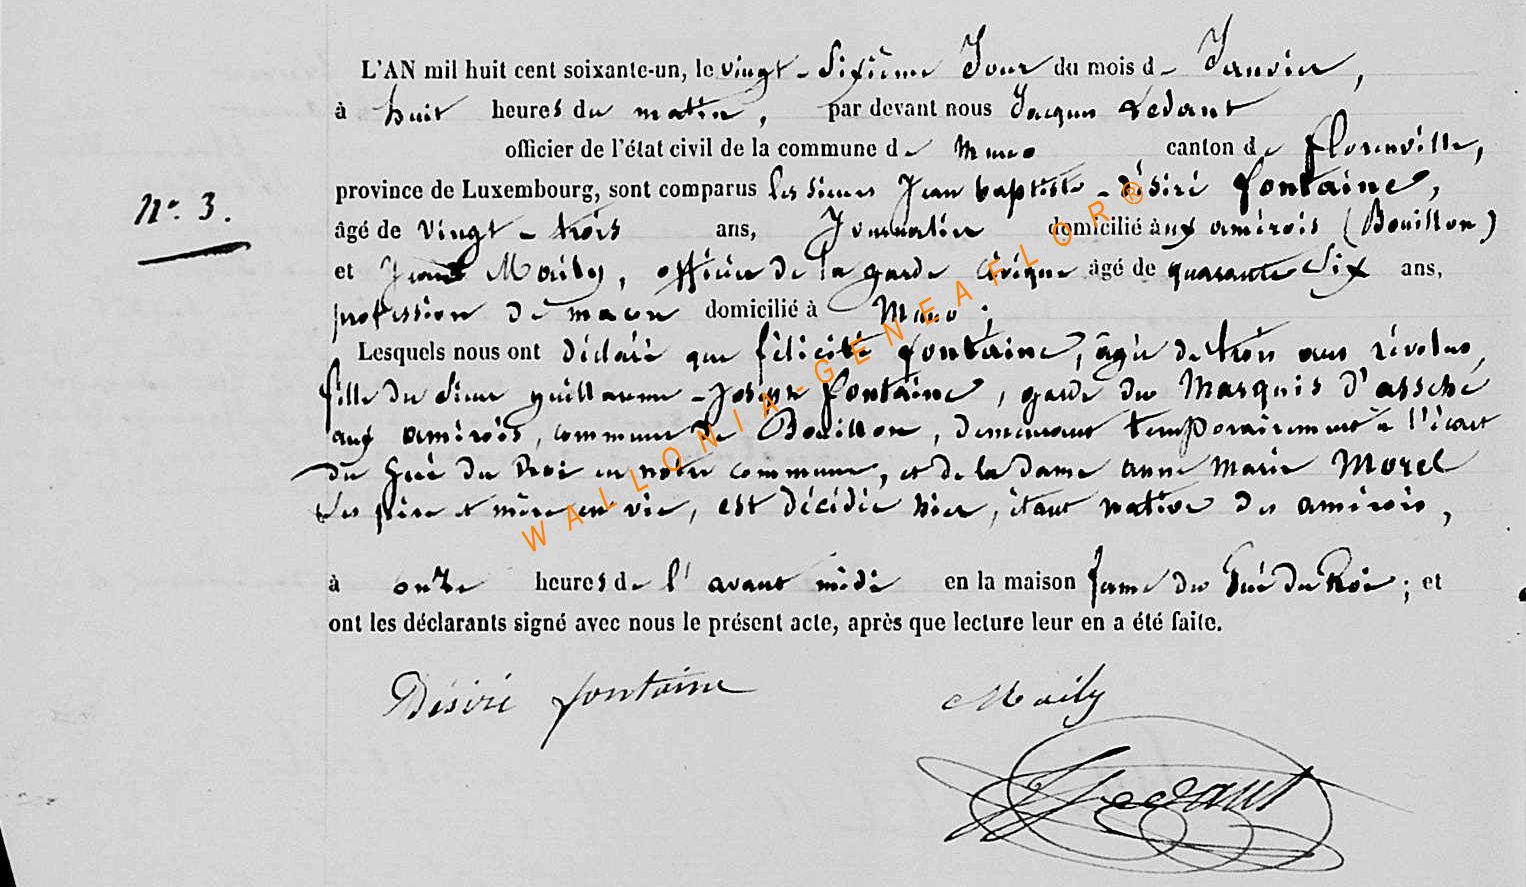 L'AN mil huit cent soixante-un, le vingt-sixième Jour du mois de Janvier,
à huit heures du matin, par devant nous Jacques Ledant
officier de l'état civil de la commune de Muno canton de florenville,
province de Luxembourg, sont comparus les sieurs Jean baptiste-désiré fontaine,
N° 3.
âgé de vingt-trois ans, Journalier domicilié aux amérois (Bouillon)
et Jean Maily, officier de la garde Civique âgé de quarante Six ans,
profession de maçon domicilié à Muno;
Lesquels nous ont déclaré que félicité fontaine, âgée de trois ans révolus,
fille du Sieur guillaume-Joseph fontaine, garde du Marquis d'assché
aux amérois, commune de Bouillon, demeurant temporairement à l'écart
du Gué du Roi en notre commune, et de la dame anne Marie Morel
ses père et mère en vie, est décédée hier, étant native des amérois,
à onze heures de l'avant midi en la maison ferme du Gué du Roi; et
ont les déclarants signé avec nous le présent acte, après que lecture leur en a été faite.
Désiré fontaine Maily
JLedant
WALLONIA-GENEAFLOR®